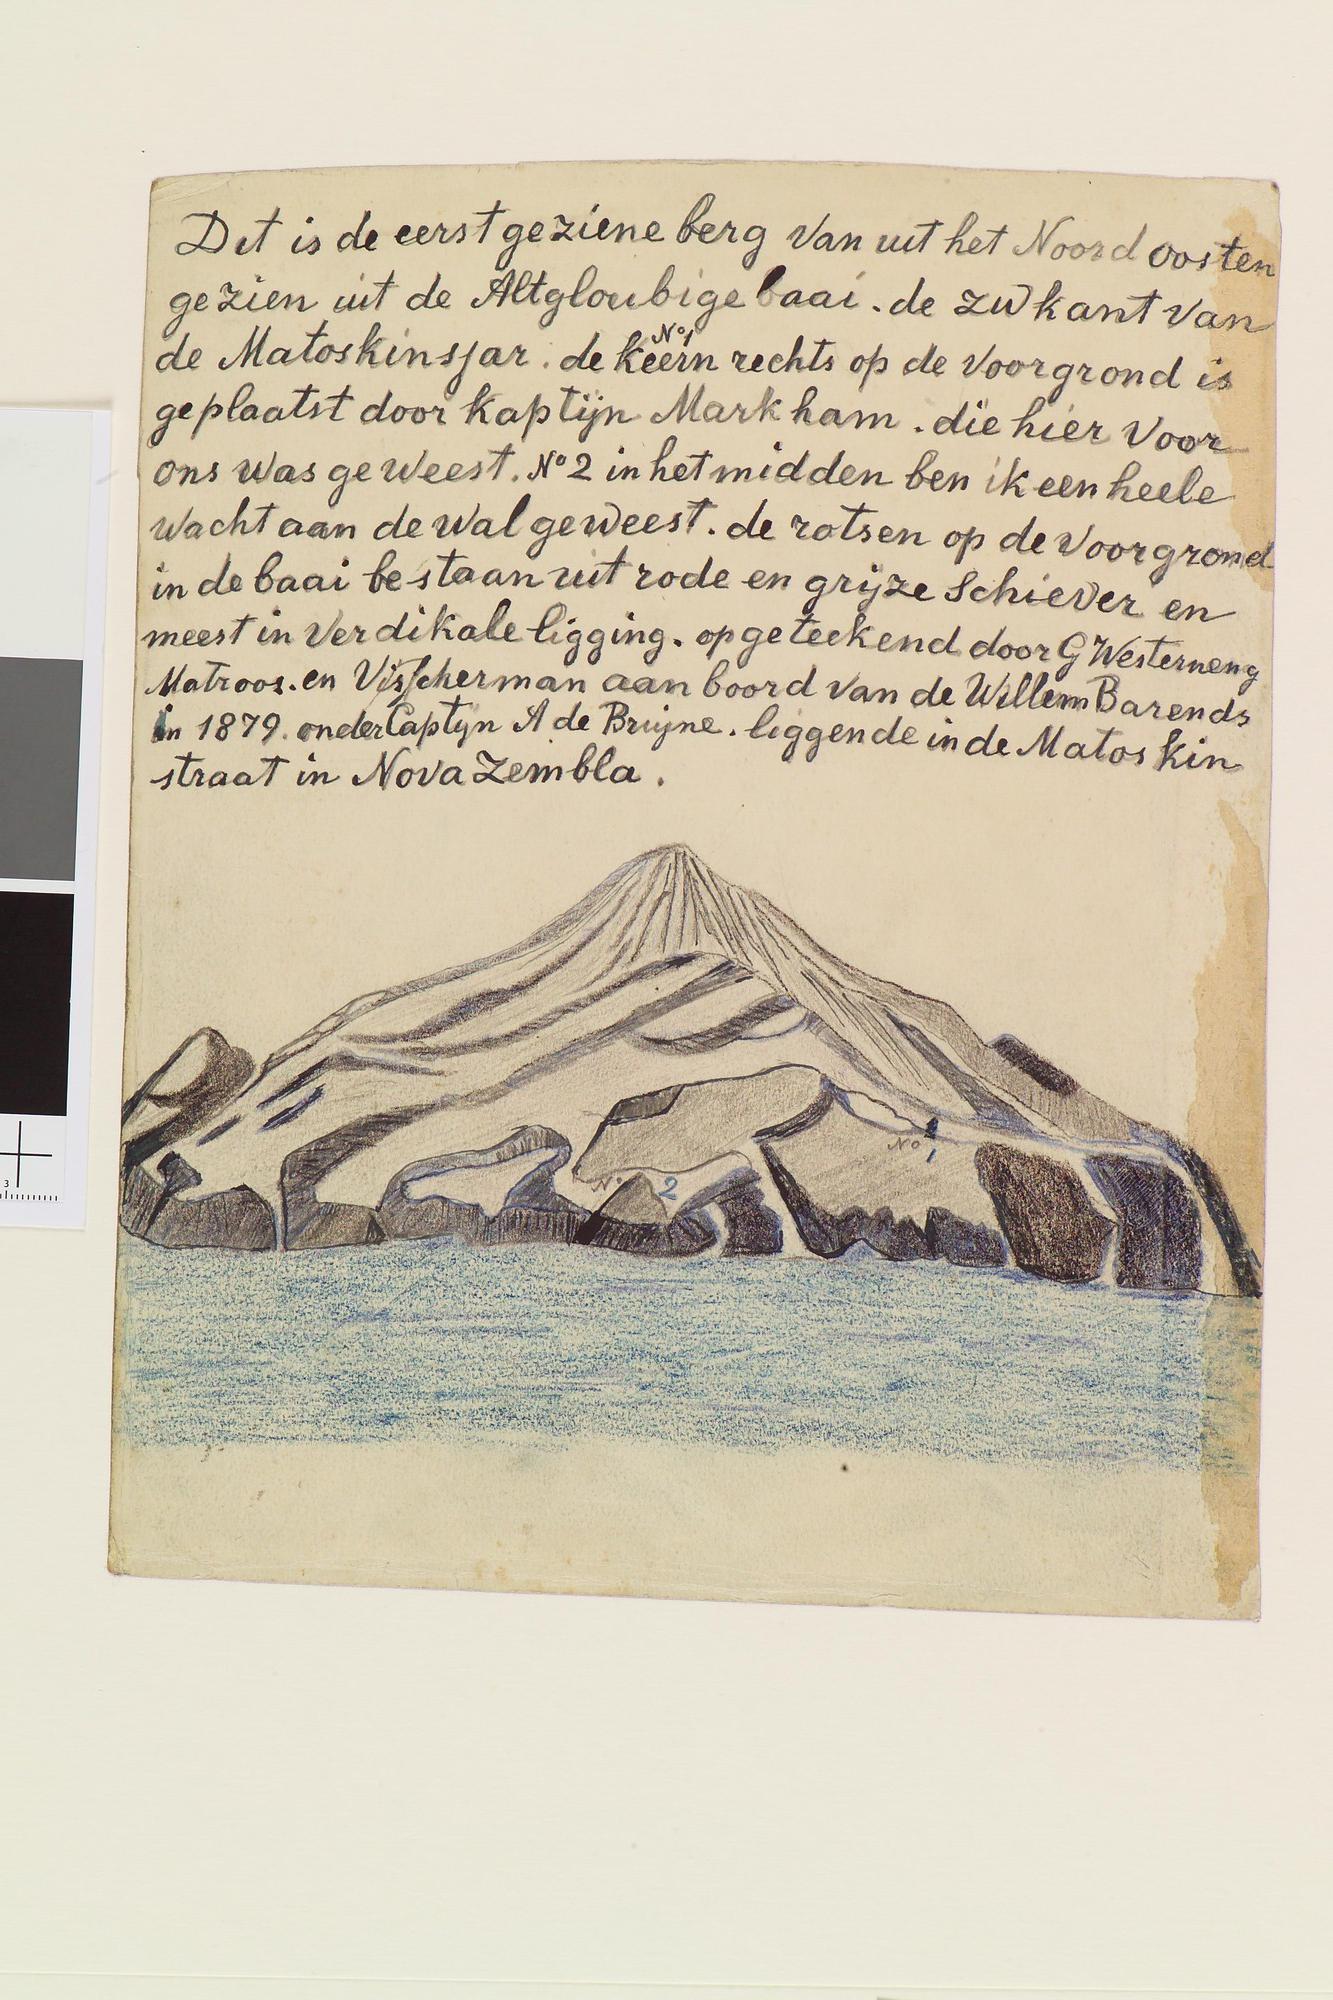 Dit is de eerst geziene berg van uit het Noord oosten
gezien uit de Altgloubige baai. de ZW kant van
de Matoskinsjar. de keern No 1 rechts op de voorgrond is
geplaatst door kaptijn Markham. die hier voor
ons was geweest. No 2 in het midden ben ik een heele
wacht aan de wal geweest. de rotsen op de voorgrond
in de baai bestaan uit rode en grijze Schiever en
meest in verdikale ligging. opgeteekend door G Westerneng
Matroos. en Visscherman aan boord van de Willem Barends
in 1879. onder Captijn A de Bruijne. liggende in de Matoskin
straat in Nova Zembla.
No 1
No 2
3